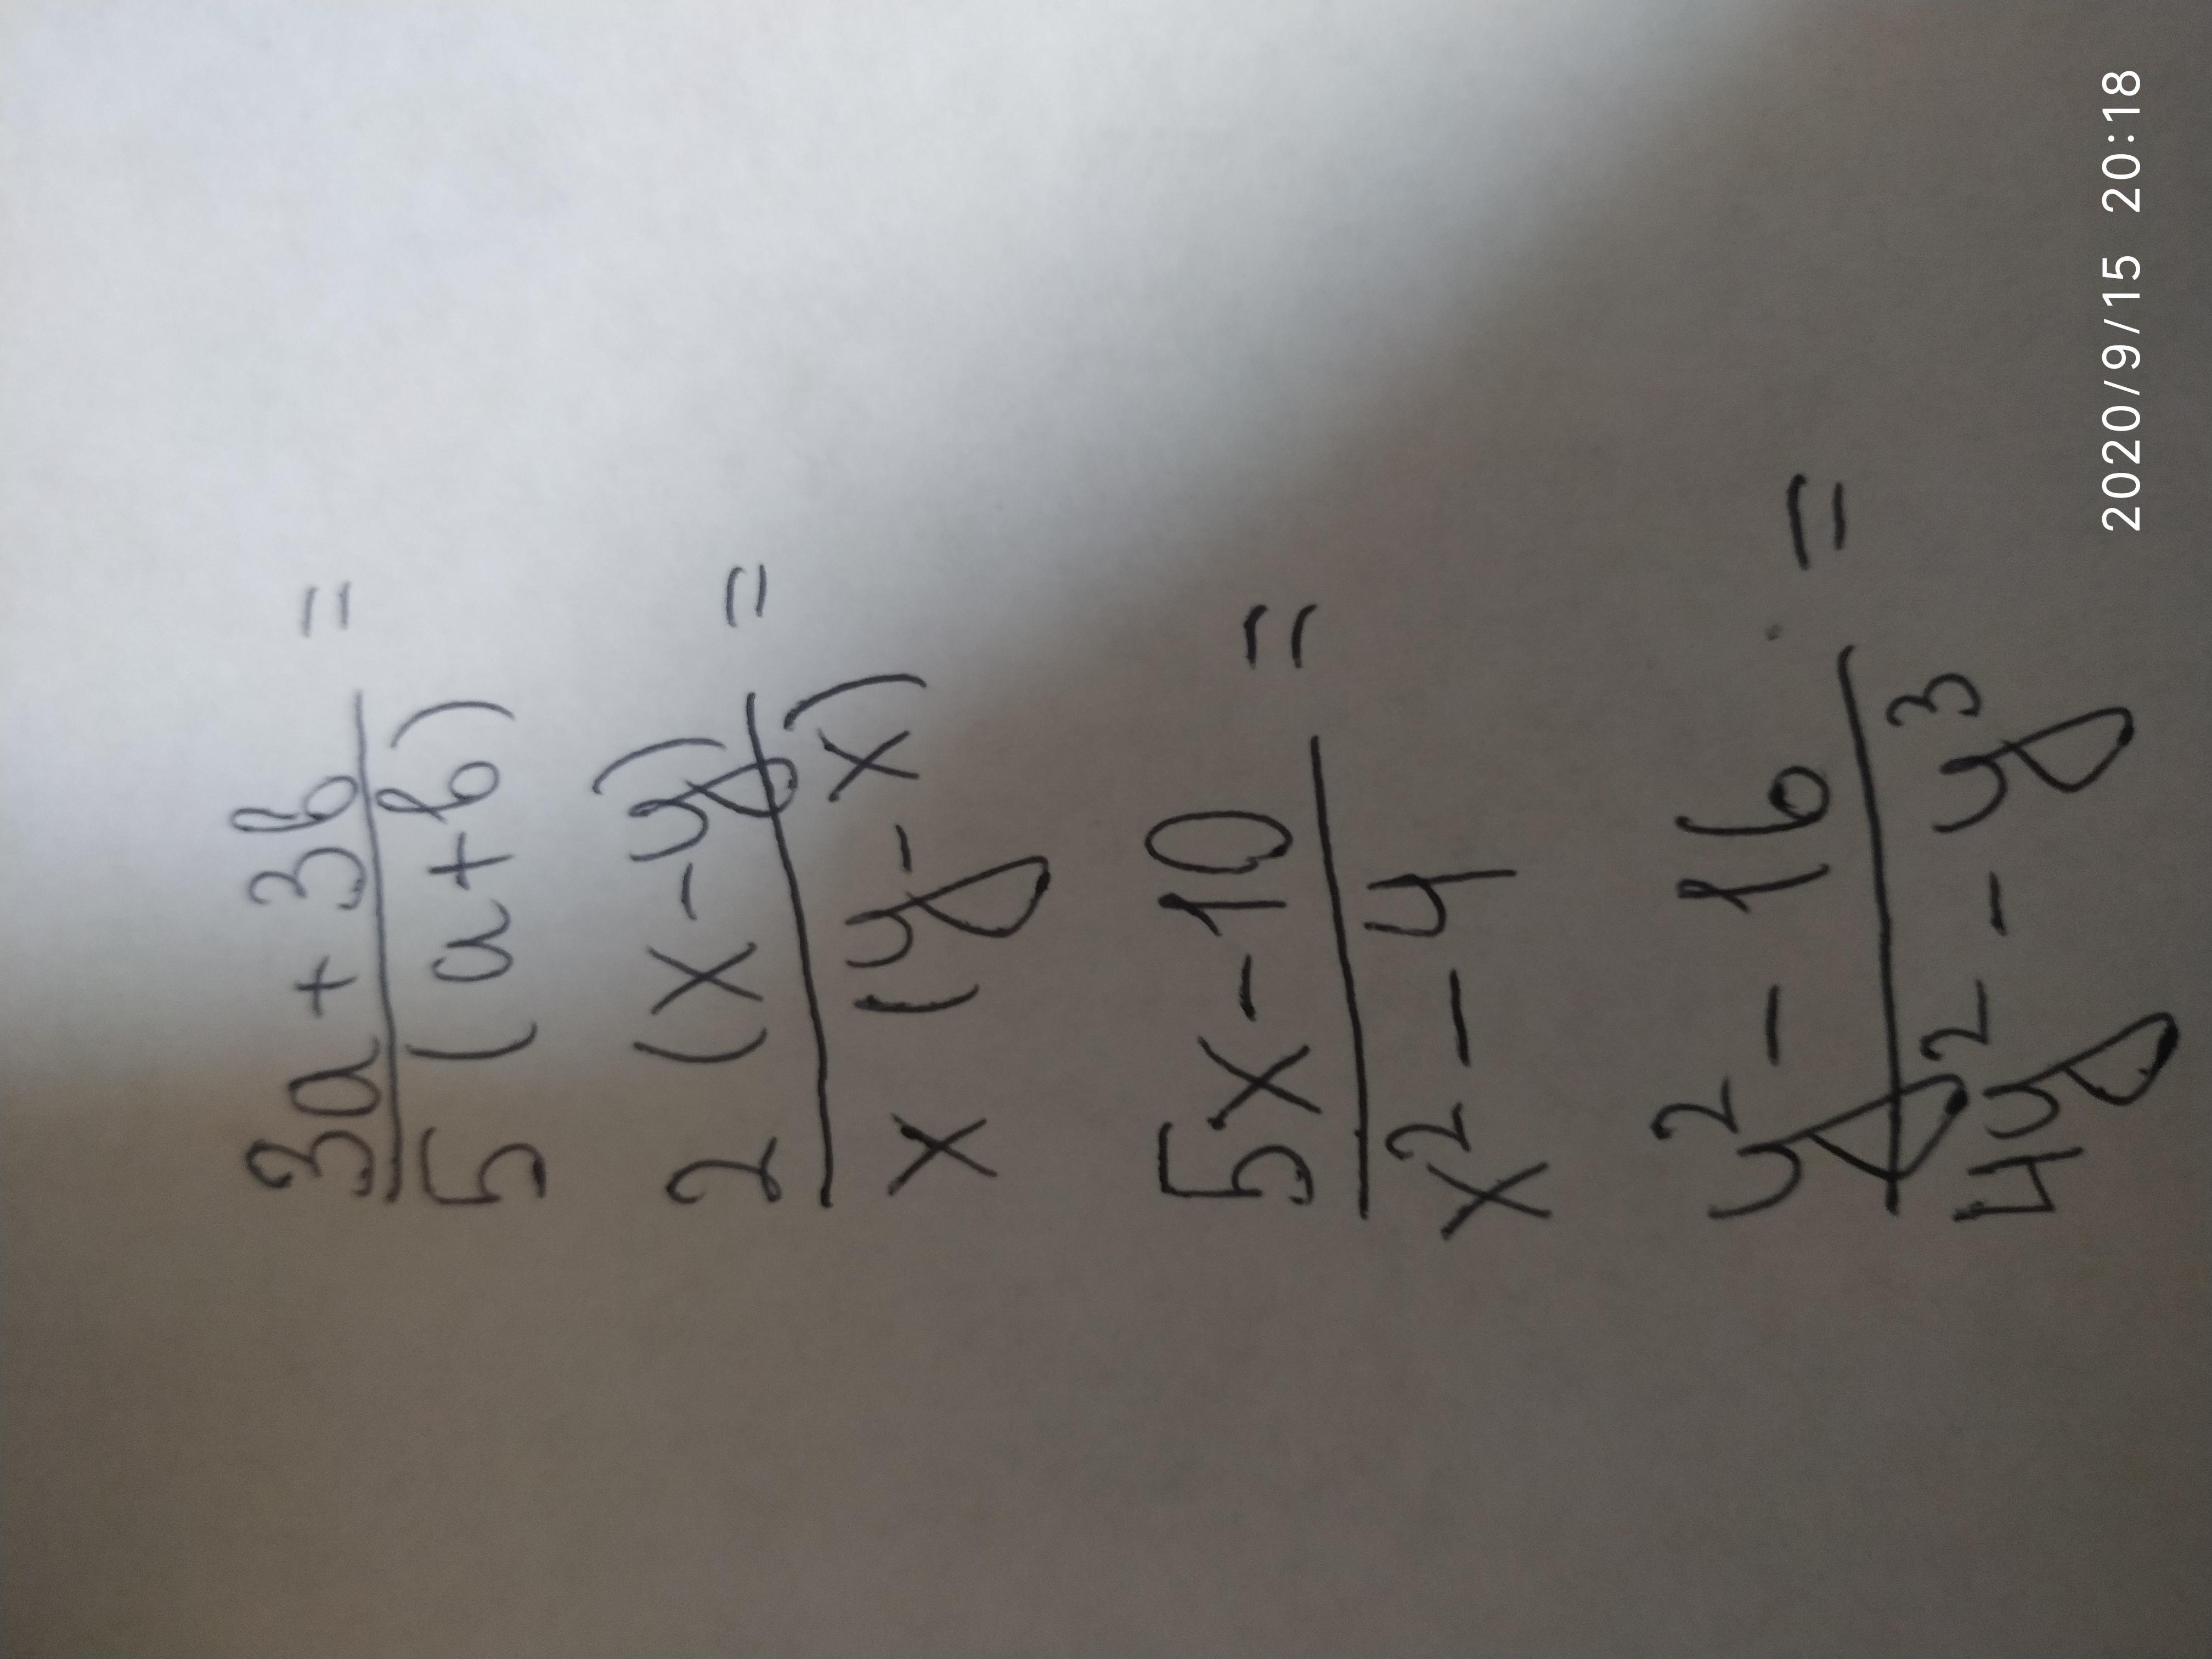 3a + 3b =
5 (a+b)
2 (x-y) =
x (y-x)
5x-10 =
x²-4
y² - 16 =
4y² - y³
2020/9/15 20:18